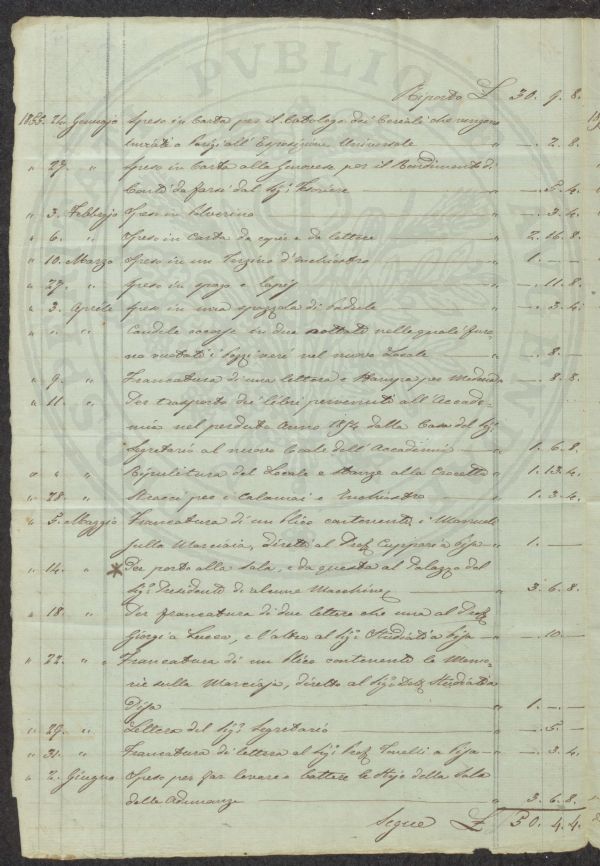 Riporto £ 30. 9. 8.
1855. 24. Gennajo Spese in Carta per il Catalogo dei Cereali che vengono
inviati a Parigi all'Esposizione Universale " —. 2. 8.
" 27. " Spese in Carta alla Genovese per il Rendimento di
Conti da farsi dal Sig. Tesoriere " —. 5. 4.
" 3. Febbrajo Spese in Polverino " —. 3. 4.
" 6. " Spese in Carta da copie e da lettere " 2. 16. 8.
" 10. Marzo Spese in un Terzino d'inchiostro " 1. —
" 27. " Spese in spago e lapis " —. 11. 8.
" 3. Aprile Spese in una spazzola di Padule " —. 3. 4.
" " " Candele occorse in due nottate nelle quali fur-
no vuotati i Pozzi neri nel nuovo Locale " —. 8. —
" 9. " Francatura di una lettera e stampa per —. 8. 8.
" 11. " Per trasporto dei libri pervenuti all'Accade-
mia nel perduto Anno 1854 dalla Casa del Sig.
Segretario al nuovo Locale dell'Accademia " 1. 6. 8.
" " " Ripulitura del Locale e Stanze alla Crocetta " 1. 13. 4.
" 28. " Stracci per i Calamai e Inchiostro " 1. 3. 4.
" 5. Maggio Francatura di un Plico contenente i Manuali
sulla Marciaia, diretti al Prof. Cuppari a Pisa " 1. —
" 14. " * Per porto alla Sala, e da questa al Palazzo del
Sig. Presidente di alcune Macchine " 3. 6. 8.
" 18. " Per francatura di due lettere che una al Prof.
Giorgi a Lucca, e l'altra al Sig. Studiati a Pisa " —. 10. —
" 22. " Francatura di un Plico contenente le Memo-
rie sulla Marciaja, diretto al Sig. Dott. Studiati a
Pisa " 1. — —
" 29. " Lettera del Sig. Segretario " —. 5. —
" 31. " Francatura di lettera al Sig. Prof. a Pisa " —. 3. 4.
" 2. Giugno Spese per far levare e battere le Stoje della Sala
delle Adunanze " 3. 6. 8.
Segue £ 50. 4. 4.